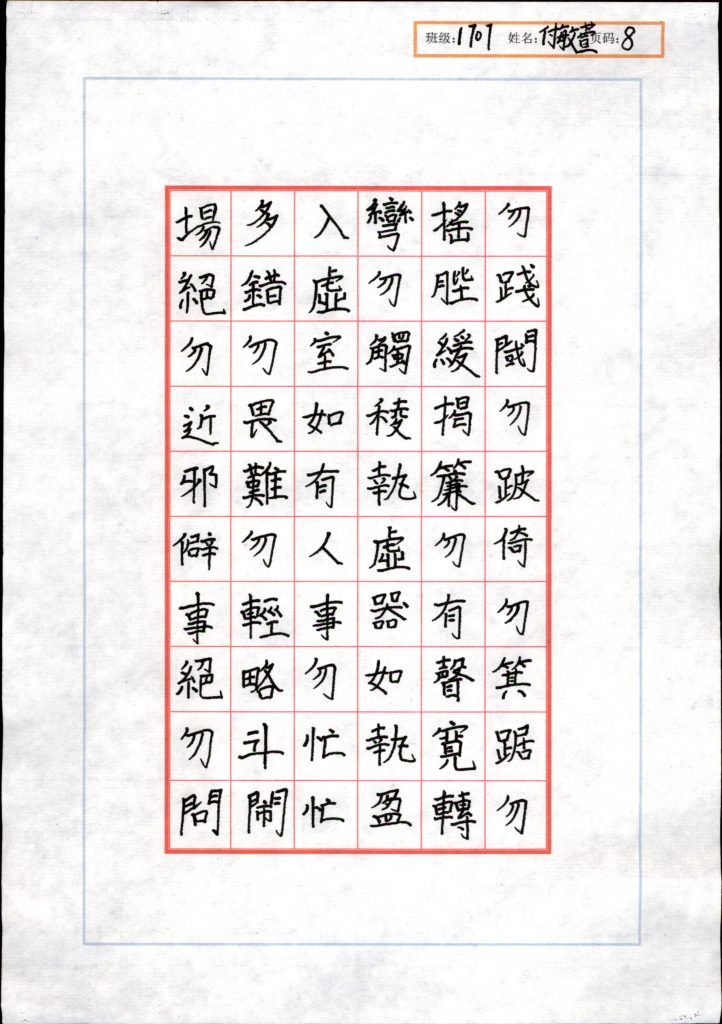 班级:1707 姓名:付敏萱 页码:8
勿踐閾勿跛倚勿箕踞勿
搖髀緩揭簾勿有聲寬轉
彎勿觸稜執虛器如執盈
入虛室如有人事勿忙忙
多錯勿畏難勿輕略斗鬧
場絕勿近邪僻事絕勿問